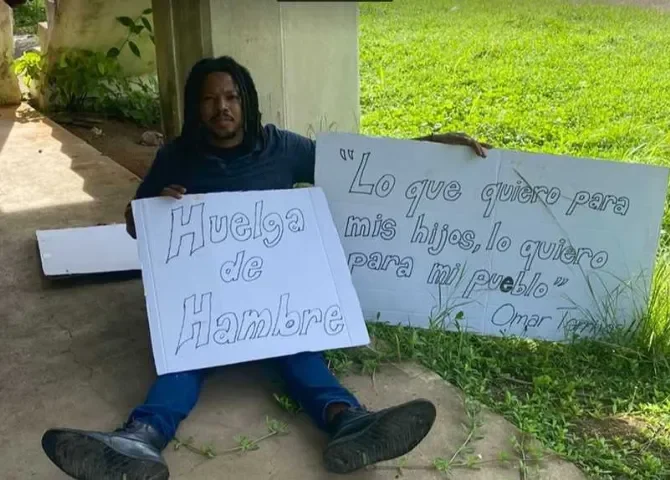 Huelga
de
Hambre
"Lo que quiero para
mis hijos, lo quiero
para mi pueblo"
Omar